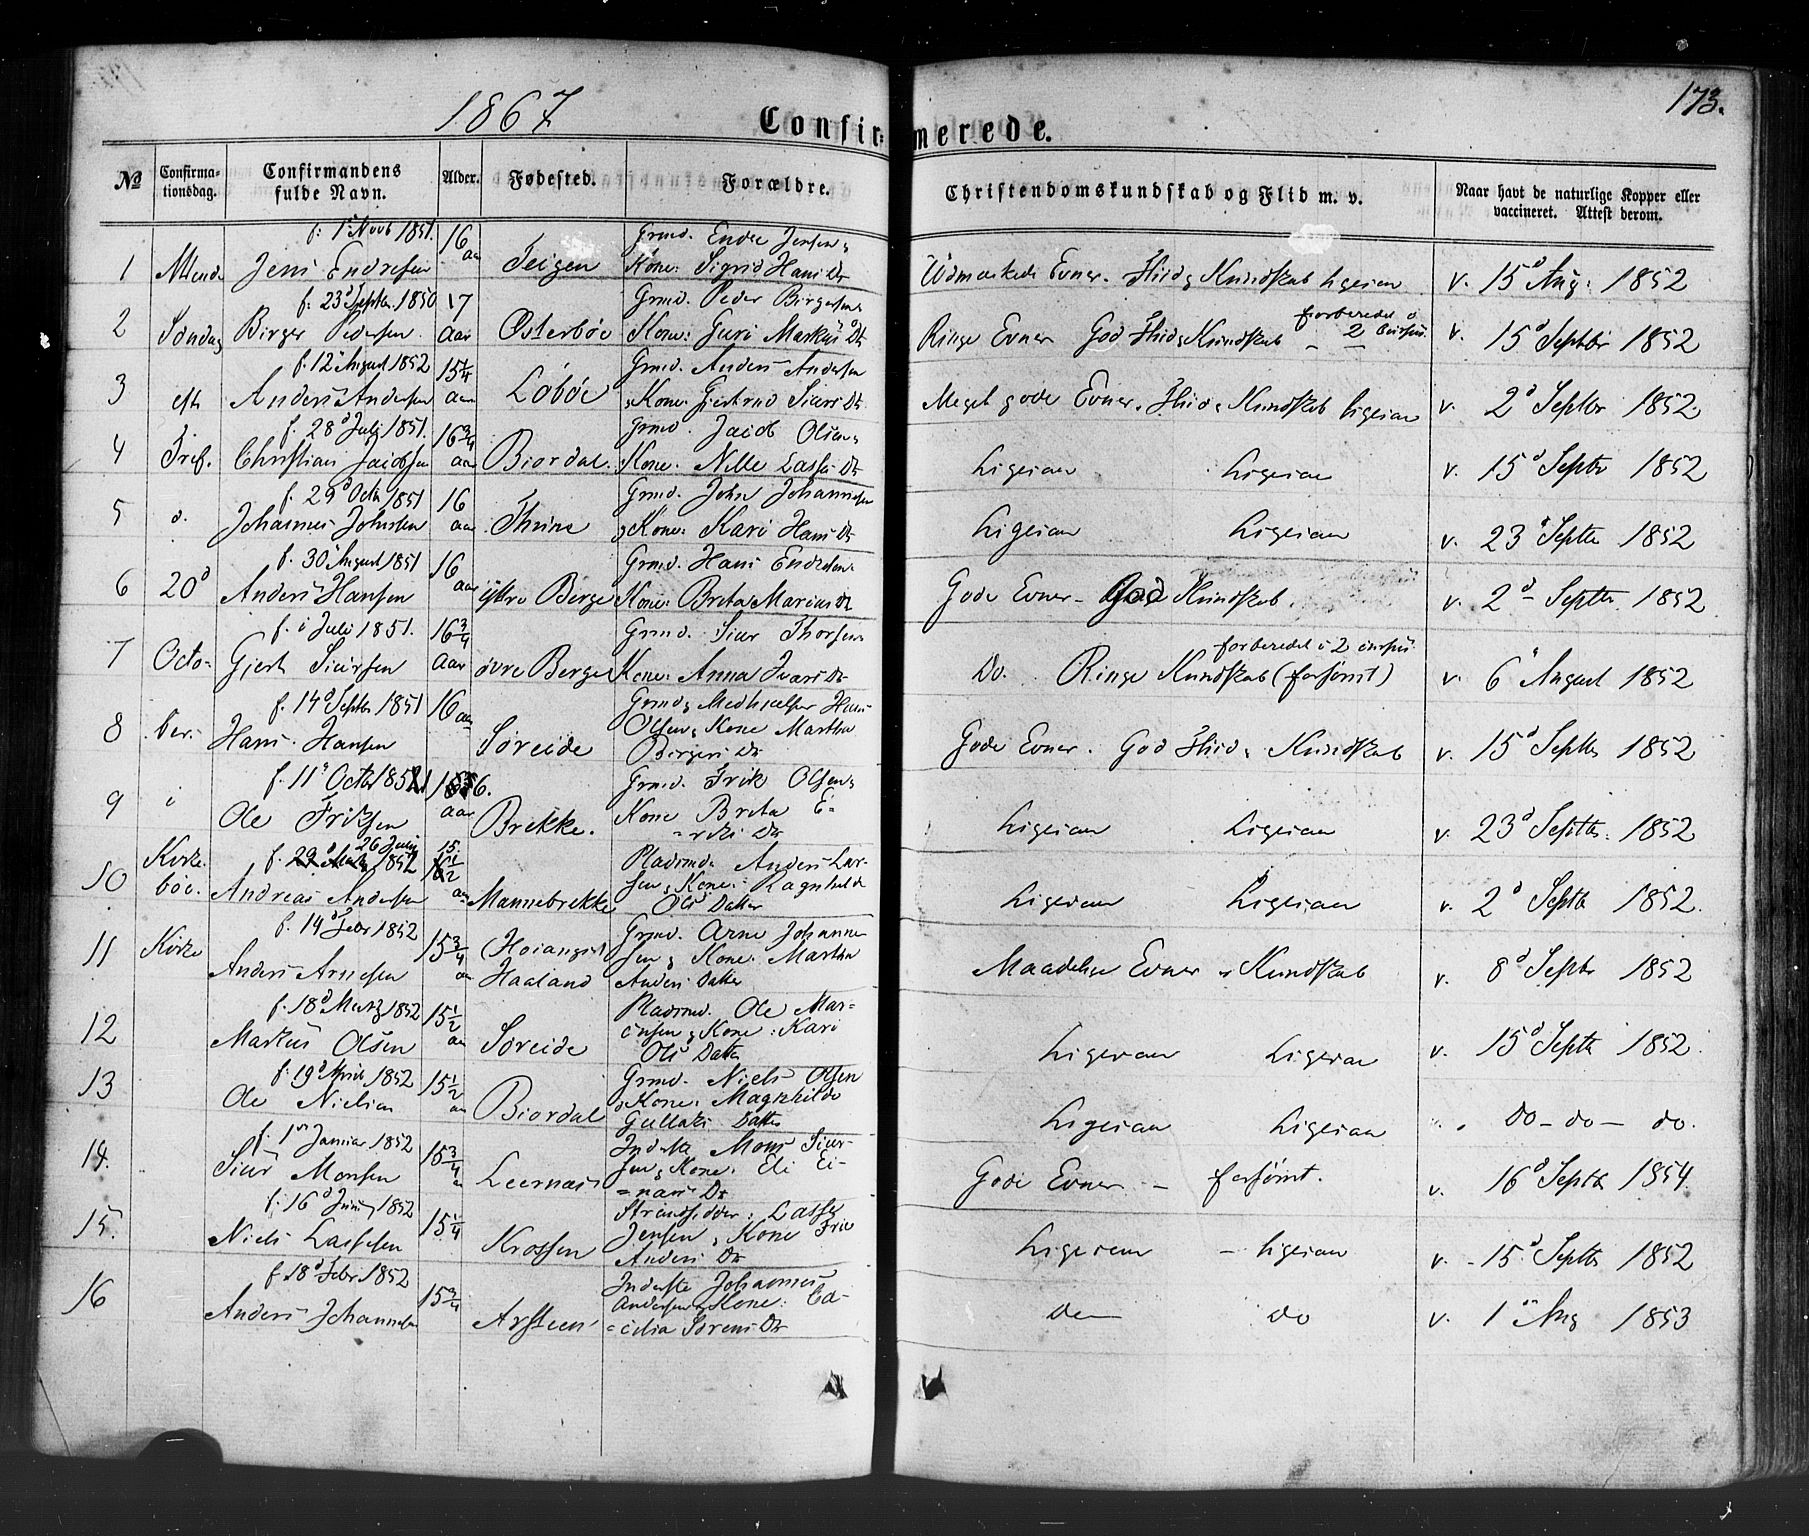 1867
173.
Confirmerede.
№ Confirmationsdag. Confirmandens fulde Navn. Alder. Fødested. Forældre. Christendomskundskab og Flid m. v. Naar havt de naturlige Kopper eller vaccineret. Attest derom.
f. 1 Novb 1851. 16 Grmd. Endre Jensen &
1 Jens Endresen aar Teigen Kone: Sigrid Hans Dr Udmærkede Evner. Flid & Kundskab ligesaa v. 15d Aug: 1852
f. 23d Septbr 1850 17 Grmd. Peder Birgersen forberedet i
2 Søndag Birger Pedersen aar Østerbøe Kone: Guri Markus Dr Ringe Evner God Flid & Kundskab 2 v. 15d Septbr 1852
f. 12 August 1852 15 1/4 Grmd. Anders Andersen
3 eft Anders Andersen aar Løbøe & Kone Gjertrud Siurs Dr Meget gode Evner. Flid & Kundskab ligesaa v. 2d Septbr 1852
f. 28d Juli 1851. 16 3/4 Grmd. Jacob Olsen &
4 Tref. Christian Jacobsen aar Biordal. Kone: Nille Lasse Dr Ligesaa Ligesaa v. 15d Septbr 1852
f. 29d Octbr 1851 16 Grmd. John Johannesen
5 d. Johannes Johnsen aar Thrine & Kone: Kari Hans Dr Ligesaa Ligesaa v. 23d Septbr 1852
f. 30 August 1851 16 Grmd. Hans Endresen
6 20d Anders Hansen aar ÿttre Berge Kone: Brita Marius Dr Gode Evner - God Kundskab. v. 2d Septbr 1852
f. i Juli 1851. 16 3/4 Grmd. Siur Thorsen forberedet i 2
7 Octo- Gjert Siursen aar øvre Berge Kone: Anna Ivars Dr Do. Ringe Kundskab (forsømt) v. 6 August 1852
f. 14d Septbr 1851 16 aar Grmd & Medhjelper Hans
8 ber Hans Hansen Søreide Olsen & Kone Martha Gode Evner. God Flid & Kundskab v. 15d Septbr 1852
Birgers Dr
f. 11 Octbr 1851 16. Grmd. Frik Olsen &
9 i Ole Friksen aar Brekke. Kone Brita E- Ligesaa Ligesaa v. 23d Septbr. 1852
=riks Dr
Kirke- f. 26 Juni 1852 15 1/2 Pladsmd. Anders Lar-
10 bøe. Andreas Andersen aar Mannebrekke sen & Kone: Ragnhilde Ligesaa Ligesaa v. 2d Septbr 1852.
Ols Datter
f. 14d Febr 1852 Grmd. Arne Johanne-
11 Kirke Anders Arnesen 15 3/4 aar Haaland sen & Kone: Martha Maadelige Evner & Kundskab v. 8d Septbr 1852
Anders Datter
f. 18d Martz 1852 15 1/2 Pladsmd. Ole Mar-
12 Markus Olsen aar Søreide & Kone: Kari Ligesaa Ligesaa v. 15d Septbr 1852.
Ols Datter
f. 19d April 1852 15 1/2 Grmd. Niels Olsen
13 Ole Nielsen aar Biordal & Kone: Magnhilde Ligesaa Ligesaa do - do - do.
Gullaks Datter
f. 1ste Januar 1852 15 3/4 Inderste Mons Siur-
14. Siur Monsen Leernæs sen & Kone: Eli Ei- Gode Evner - forsømt. v. 16d Septbr 1854
=nars Dr
f. 16d Juni 1852 15 1/4 Strandsidder: Lasse
15. Niels Lassesen Krossen Jensen & Kone Ligesaa - ligesaa v. - 15d Septbr 1852
Anders Dr
f. 18d Febr 1852 15 3/4 Inderste Johannes
16 Anders Johannesen Arsteen Andersen & Kone: Ce- do do v. 1 Aug 1853
=cilia Sørens Dr